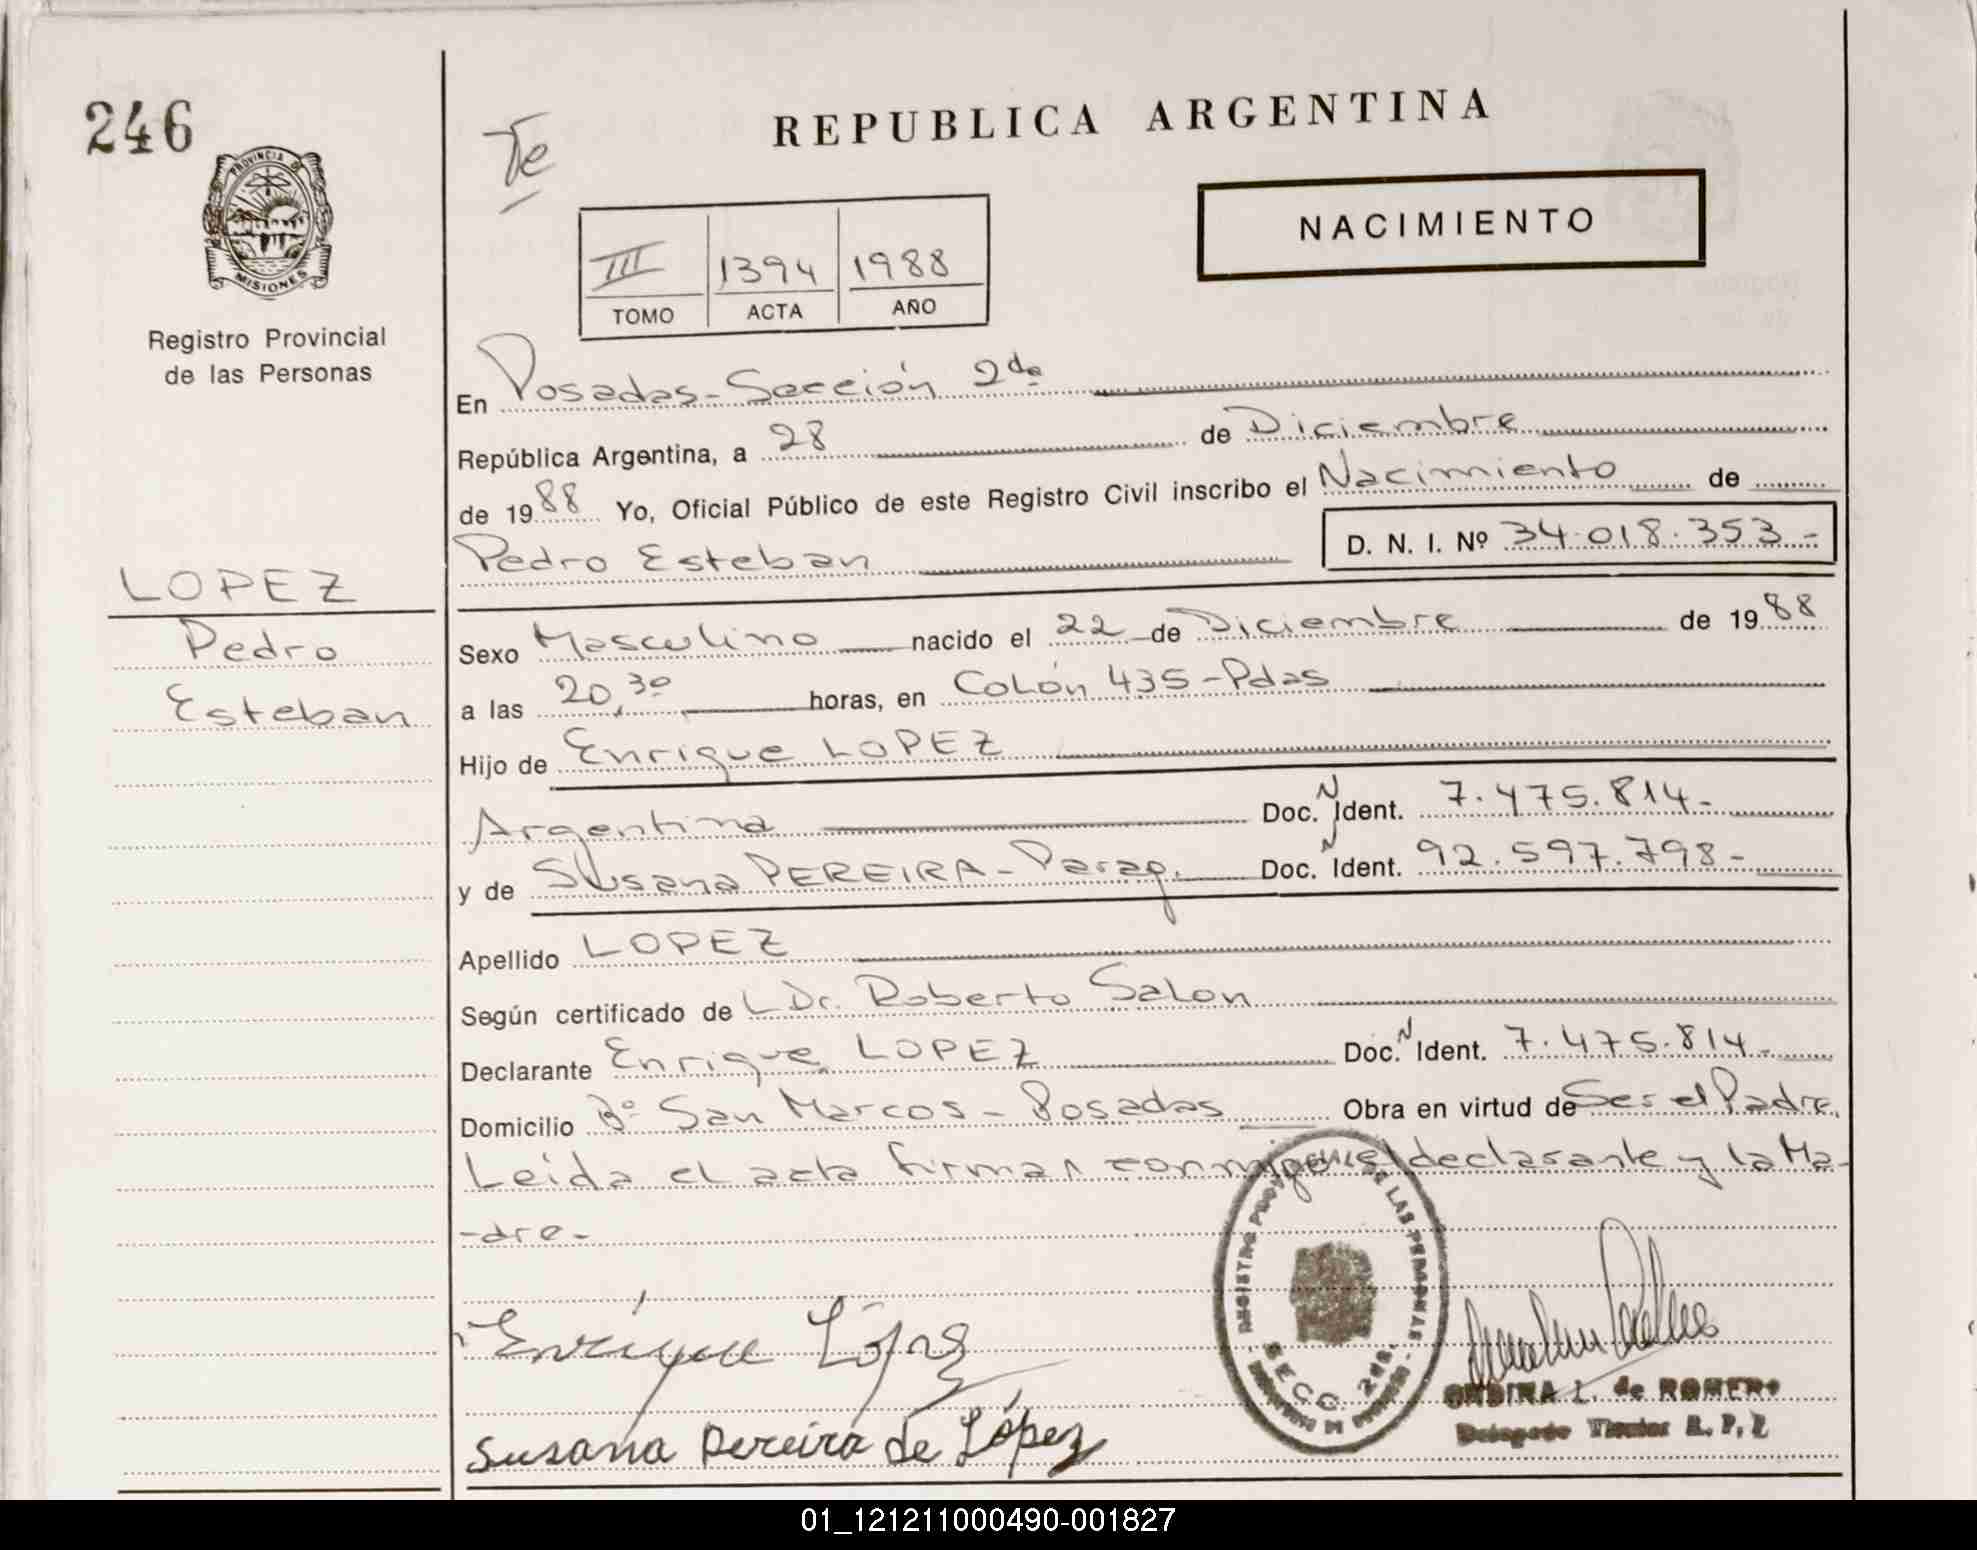 246
Te
REPUBLICA ARGENTINA
NACIMIENTO
PROVINCIA DE
MISIONES
Registro Provincial
de las Personas
III 1394 1988
TOMO ACTA AÑO
En Posadas - Sección 2da
República Argentina, a 28 de Diciembre
de 1988 Yo, Oficial Público de este Registro Civil inscribo el Nacimiento de
Pedro Esteban D. N. I. Nº 34.018.353-
LOPEZ
Pedro
Esteban
Sexo Masculino nacido el 22 de Diciembre de 1988
a las 20,30 horas, en Colón 435-Pdas
Hijo de Enrique LOPEZ
Argentina Doc. N Ident. 7.475.814-
y de Susana PEREIRA - Parag. Doc. N Ident. 92.597.798-
Apellido LOPEZ
Según certificado de L Dr. Roberto Salon
Declarante Enrique LOPEZ Doc. N Ident. 7.475.814-
Domicilio Bº San Marcos - Posadas Obra en virtud de Ser el Padre.
Leida el acta firman conmigo el declarante y la Ma-
-dre-
Enrique López
Susana Pereira de López
REGISTRO PROVINCIAL DE LAS PERSONAS
SECC. 2da.
ONDINA L. de ROMERO
Delegado Titular R. P. P.
01_121211000490-001827